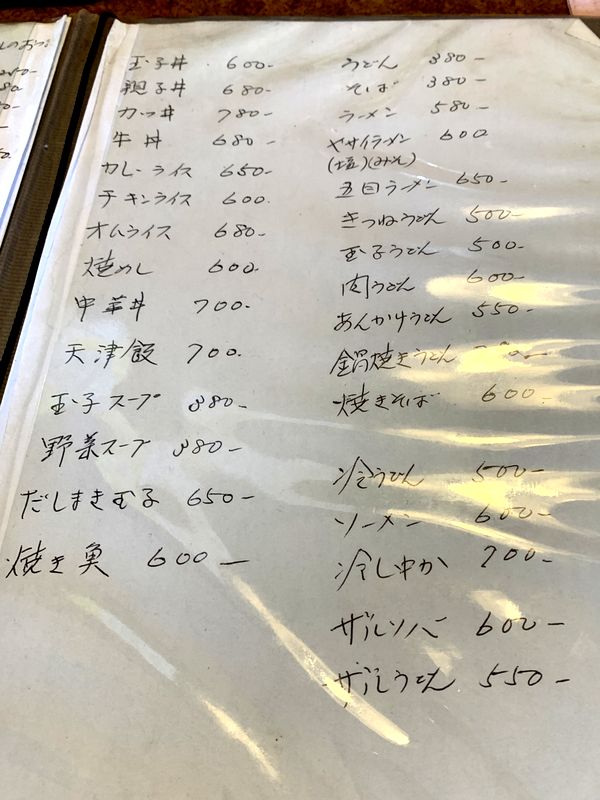 玉子丼 600-
親子丼 680-
カツ丼 780-
牛丼 680-
カレーライス 650-
チキンライス 600.
オムライス 680-
焼めし 600.
中華丼 700.
天津飯 700.
玉子スープ 380-
野菜スープ 380-
だしまき玉子 650-
焼き魚 600-
うどん 380-
そば 380-
ラーメン 580-
ヤサイラーメン 600
(塩)(みそ)
五目ラーメン 650-
きつねうどん 500-
玉子うどん 500-
肉うどん 600-
あんかけうどん 550-
鍋焼きうどん
焼きそば 600-
冷うどん 500-
ソーメン 600-
冷し中か 700-
ザルソバ 600-
ザルうどん 550-